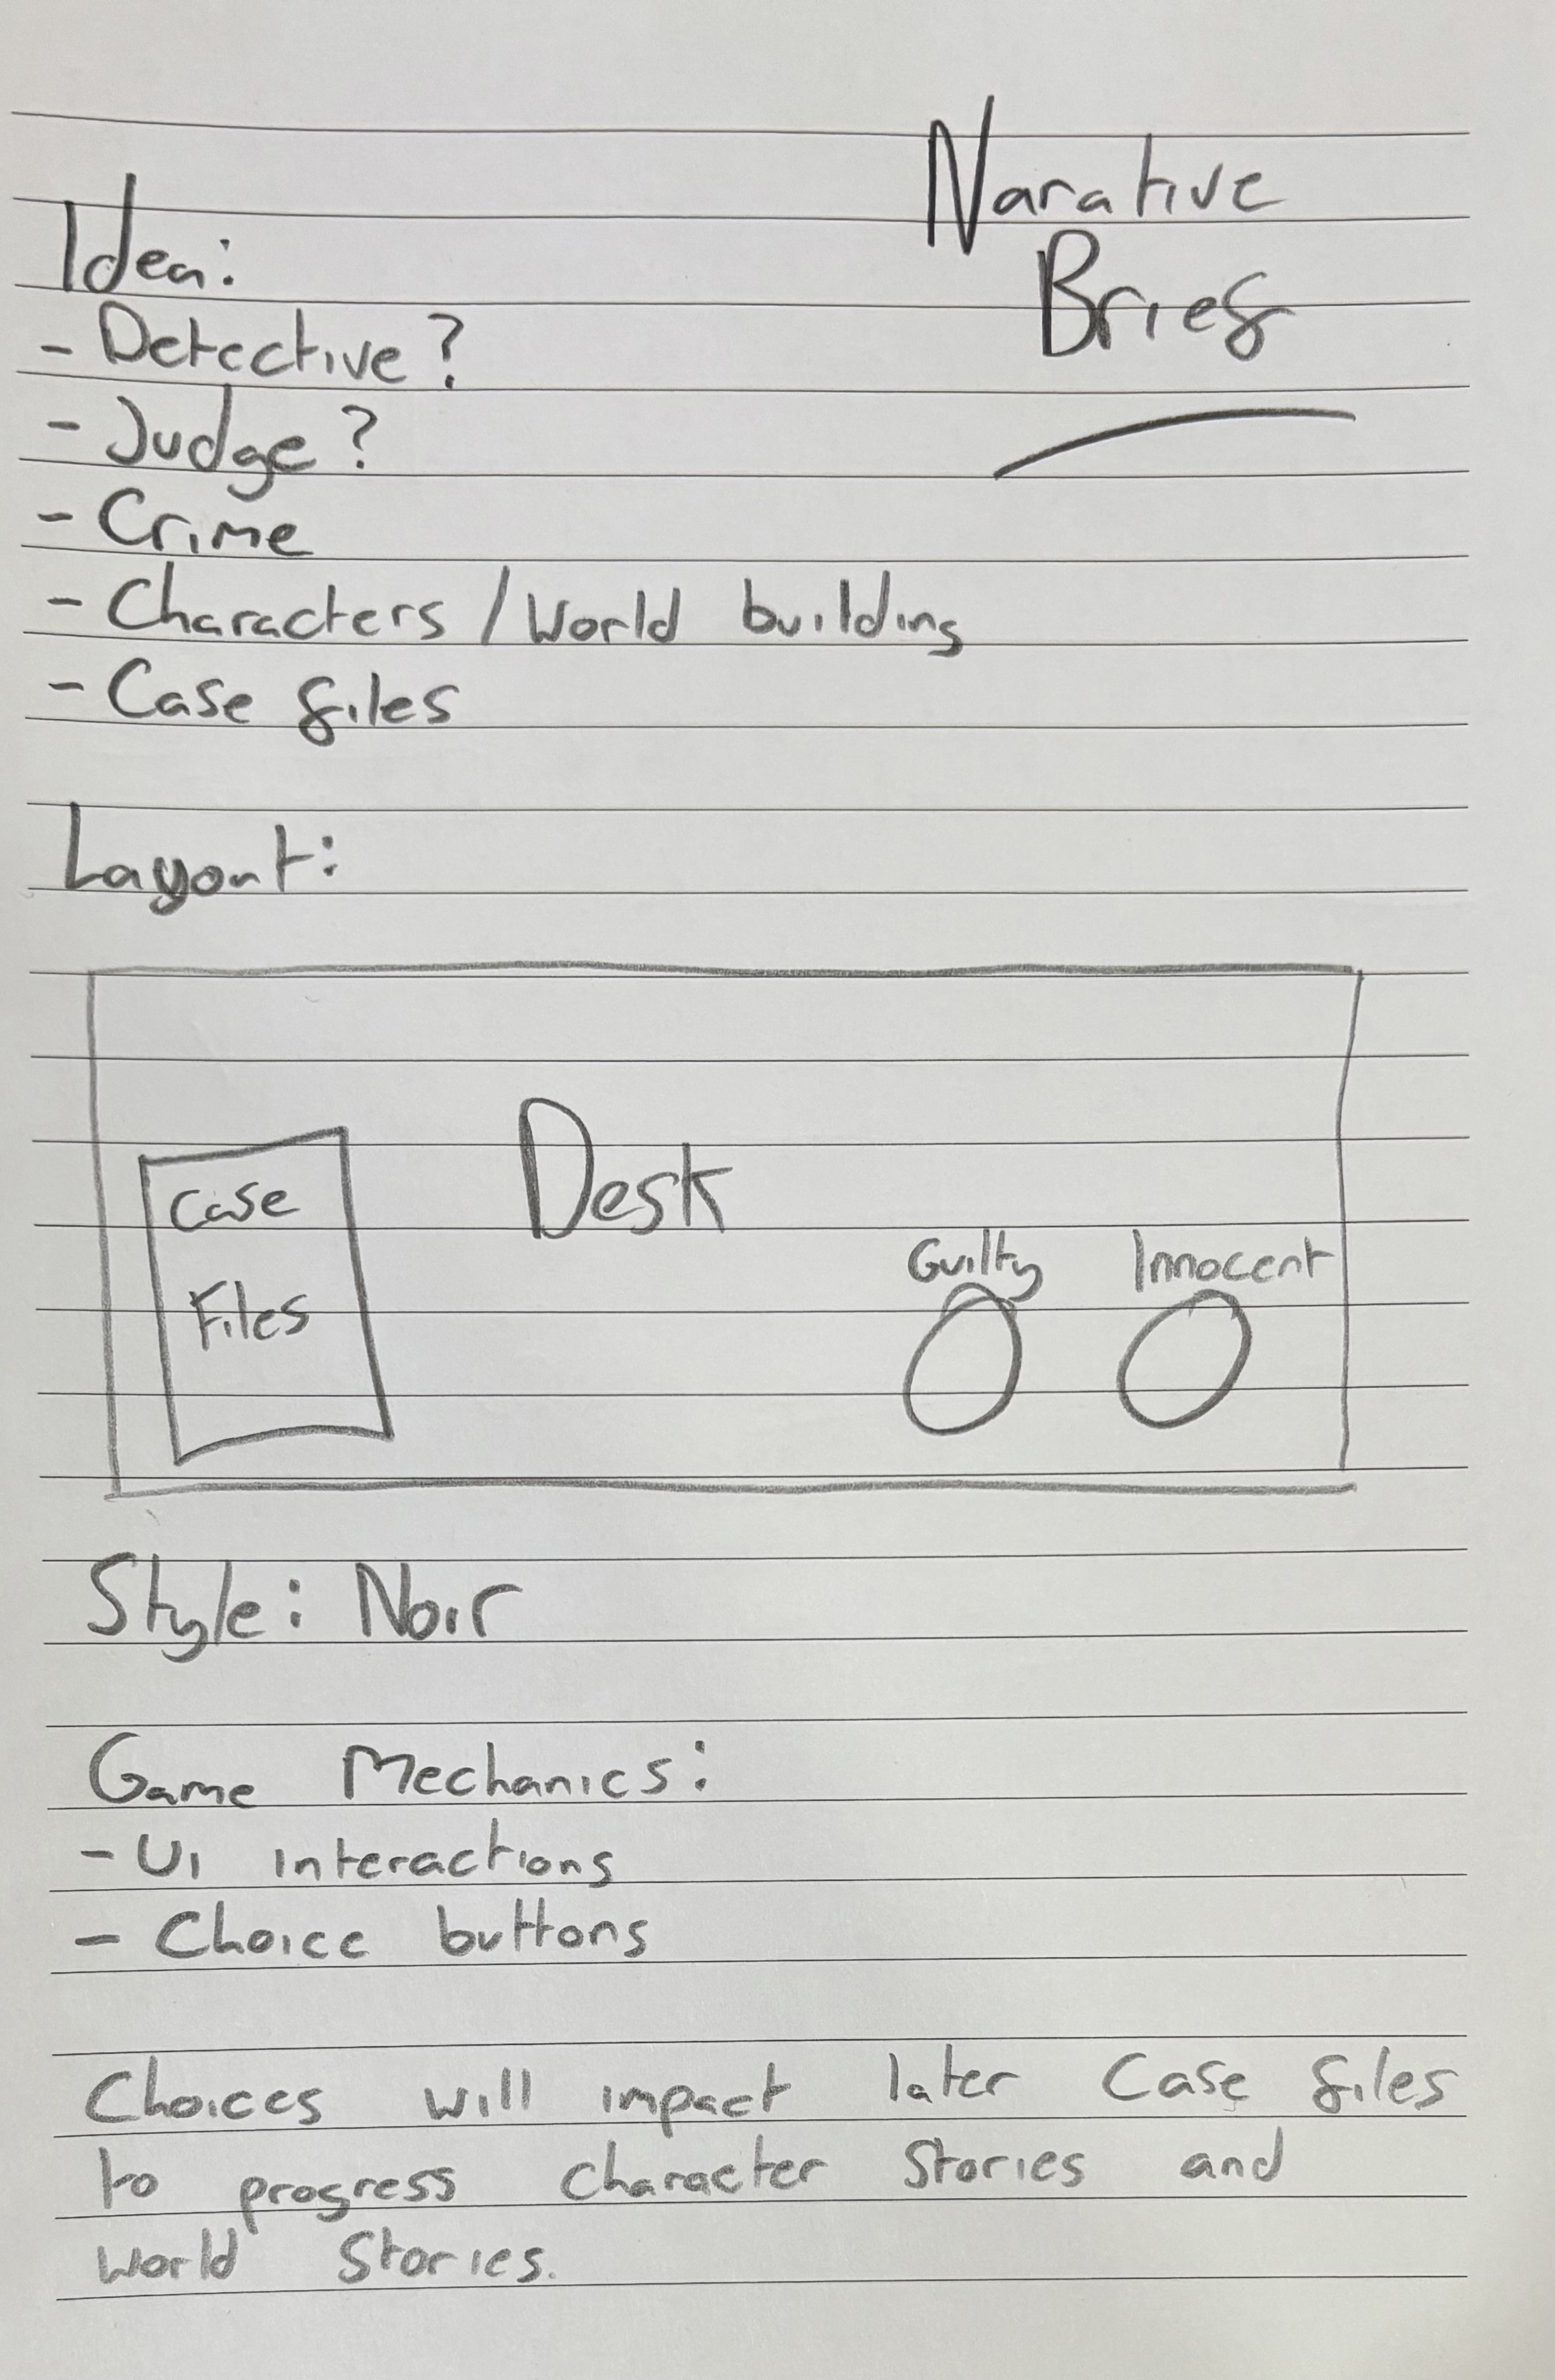 Narative
Brief
Idea:
- Detective?
- Judge?
- Crime
- Characters / World building
- Case files
Layout:
Case
Files
Desk
Guilty
Innocent
Style: Noir
Game Mechanics:
- UI interactions
- Choice buttons
Choices will impact later Case files
to progress character Stories and
world Stories.